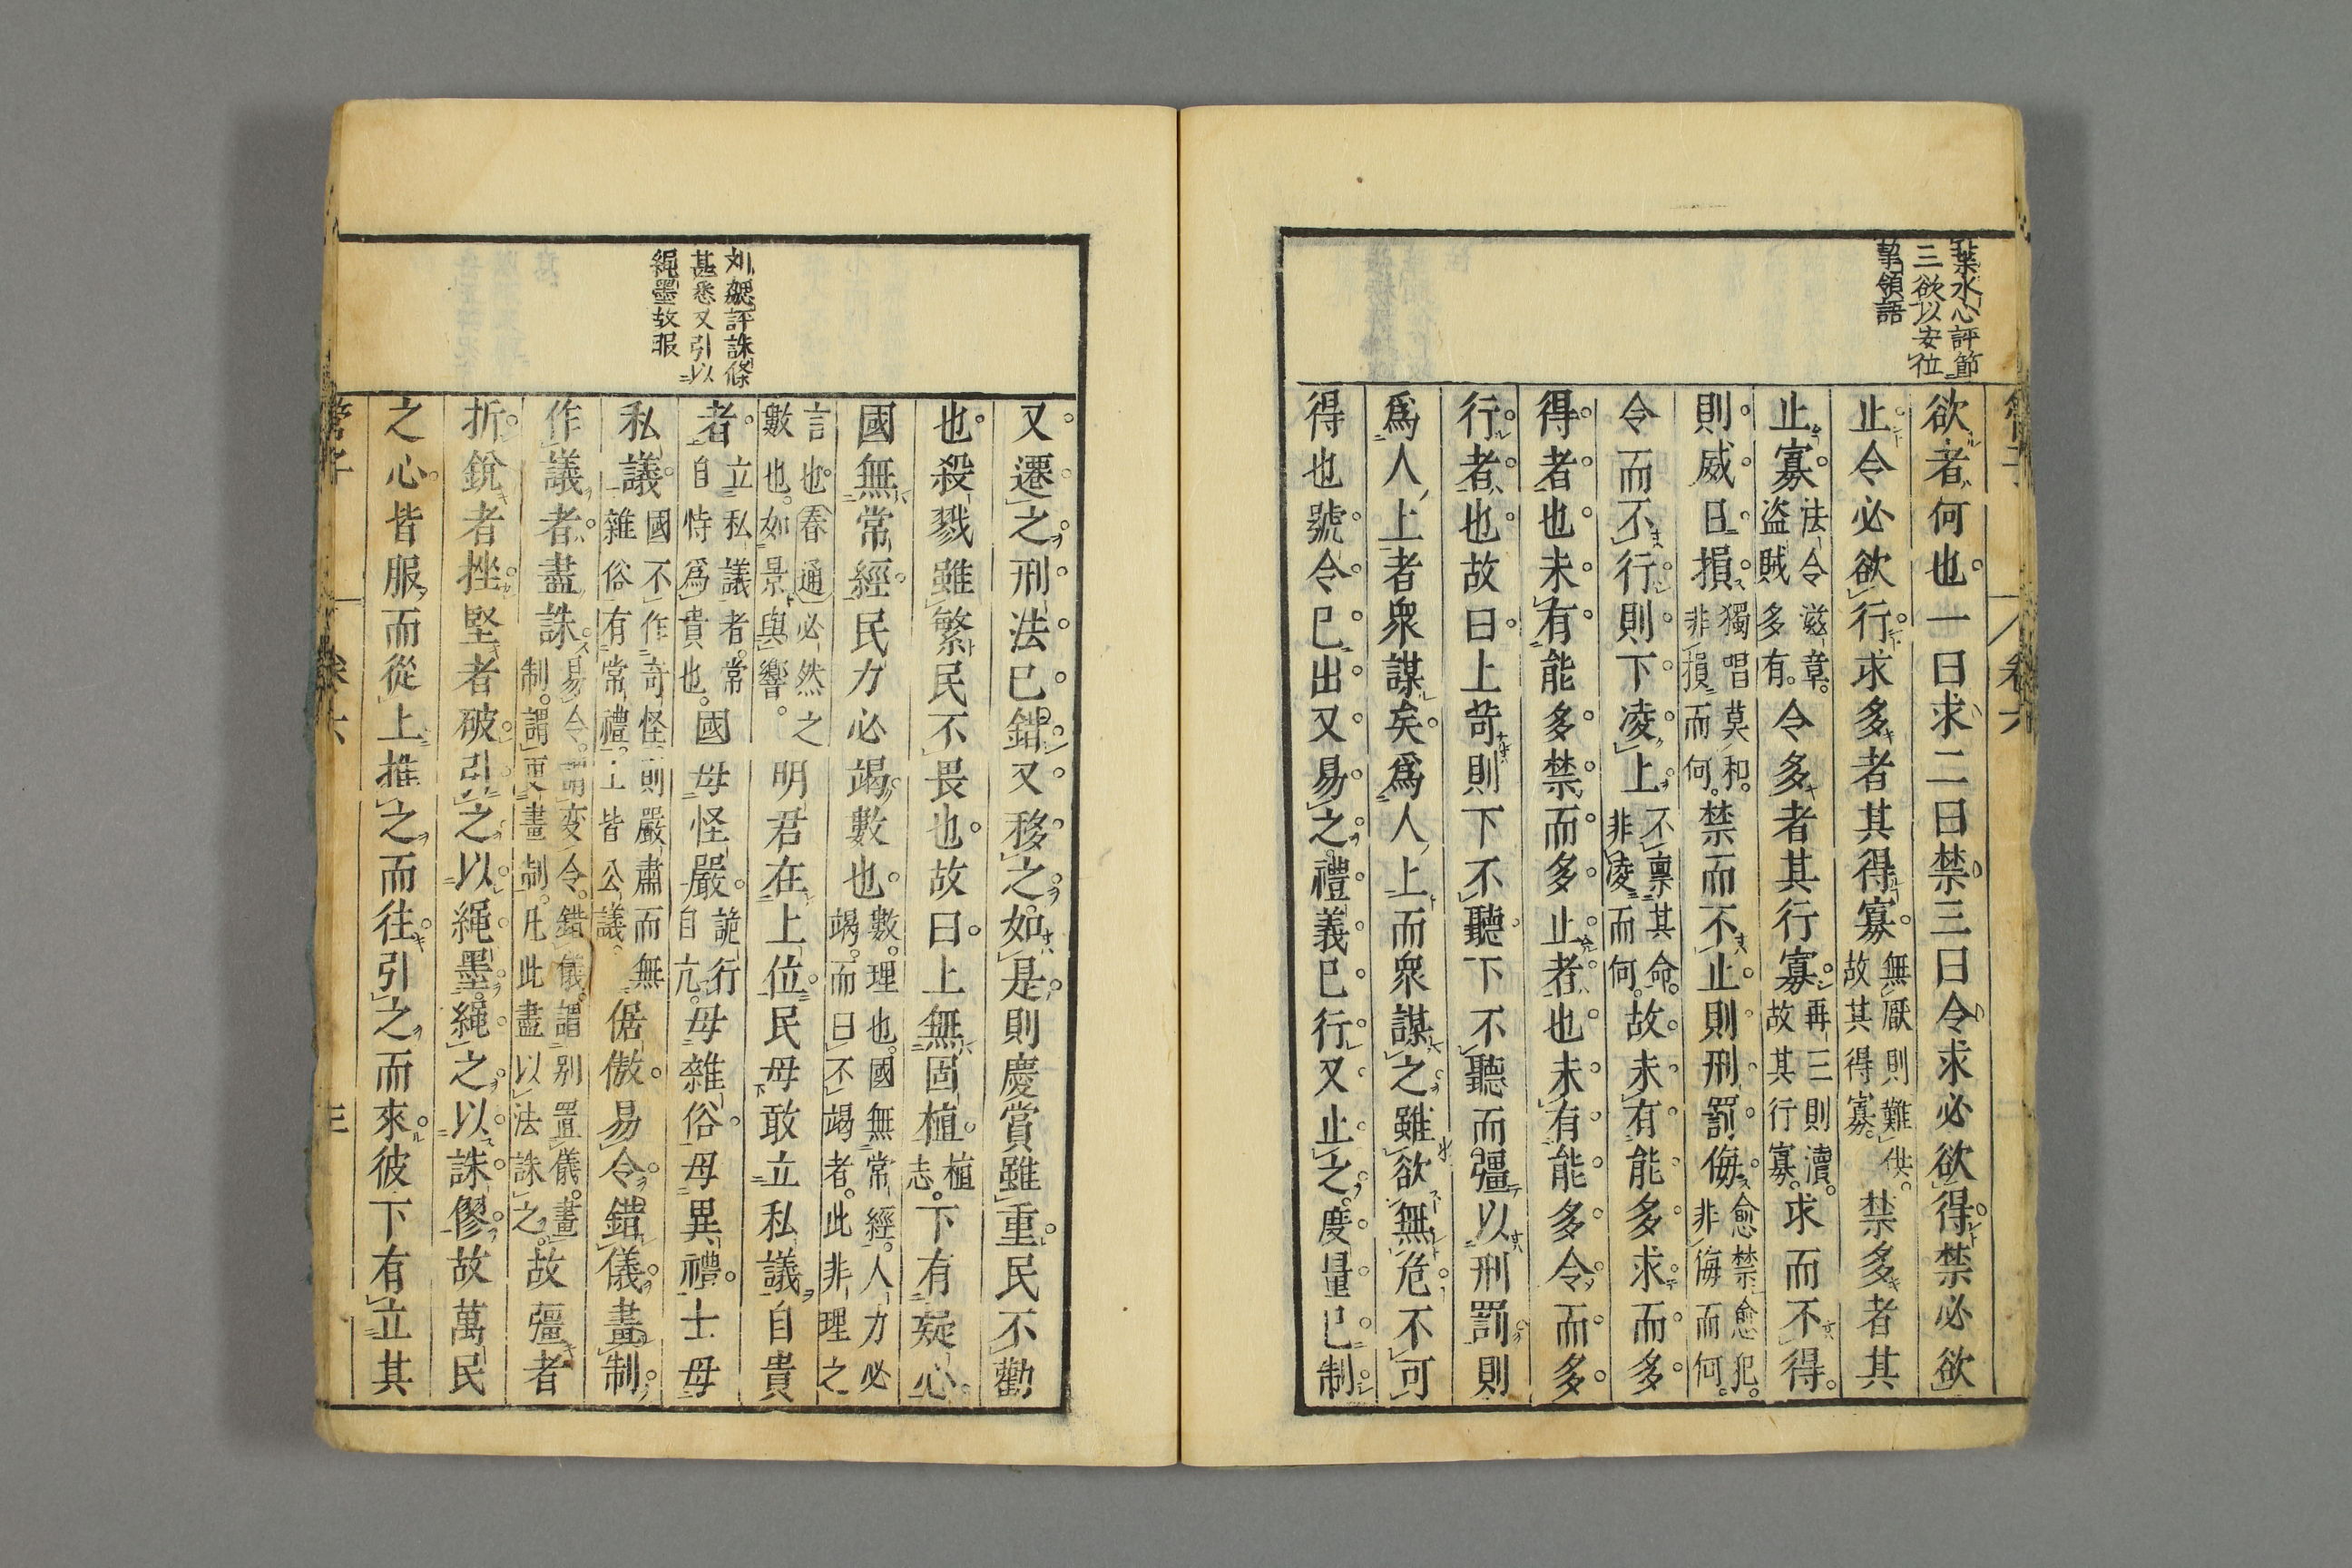 管子
卷六
葉水心評節
三欲以安位
挈領語
欲者何也。一曰求二曰禁三曰令求必欲得禁必欲
止令必欲行求多者其得寡無厭則難供。故其得寡。禁多者其
止寡法令滋章。盜賊多有。令多者其行寡再三則瀆。故其行寡。求而不得
則威日損獨唱莫和。非損而何。禁而不止則刑罰侮愈禁愈犯。非侮而何。
令而不行則下凌上不稟其命。非凌而何。故未有能多求而多
得者也未有能多禁而多止者也未有能多令而多
行者也故曰上苛則下不聽下不聽而彊以刑罰則
爲人上者衆謀矣爲人上而衆謀之雖欲無危不可
得也號令已出又易之禮義已行又止之度量已制
刘勰評誅條
甚悉又引以
繩墨故服
又遷之刑法已錯又移之如是則慶賞雖重民不勸
也殺戮雖繁民不畏也故曰上無固植植志。下有疑心
國無常經民力必竭數也數。理也。國無常經。人力必竭。而曰不竭者。此非理之
言也。春通必然之數也。如景與響。明君在上位民毋敢立私議自貴
者立私議者。常自恃爲貴也。國毋怪嚴詭行自亢。毋雜俗毋異禮士毋
私議國不作奇怪則嚴肅而無雜俗有常禮。士皆公議。倨傲易令錯儀畫制
作議者盡誅易令。謂変令。錯儀。謂別置儀。畫制。謂更畫制。凡此盡以法誅之。故彊者
折銳者挫堅者破引之以繩墨繩之以誅僇故萬民
之心皆服而從上推之而往引之而來彼下有立其
管子
卷六
三